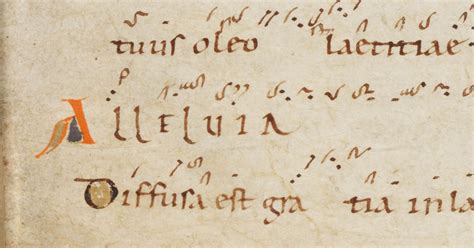 tuuis oleo laetitiae
Alleluia
Diffusa est gra tia in la